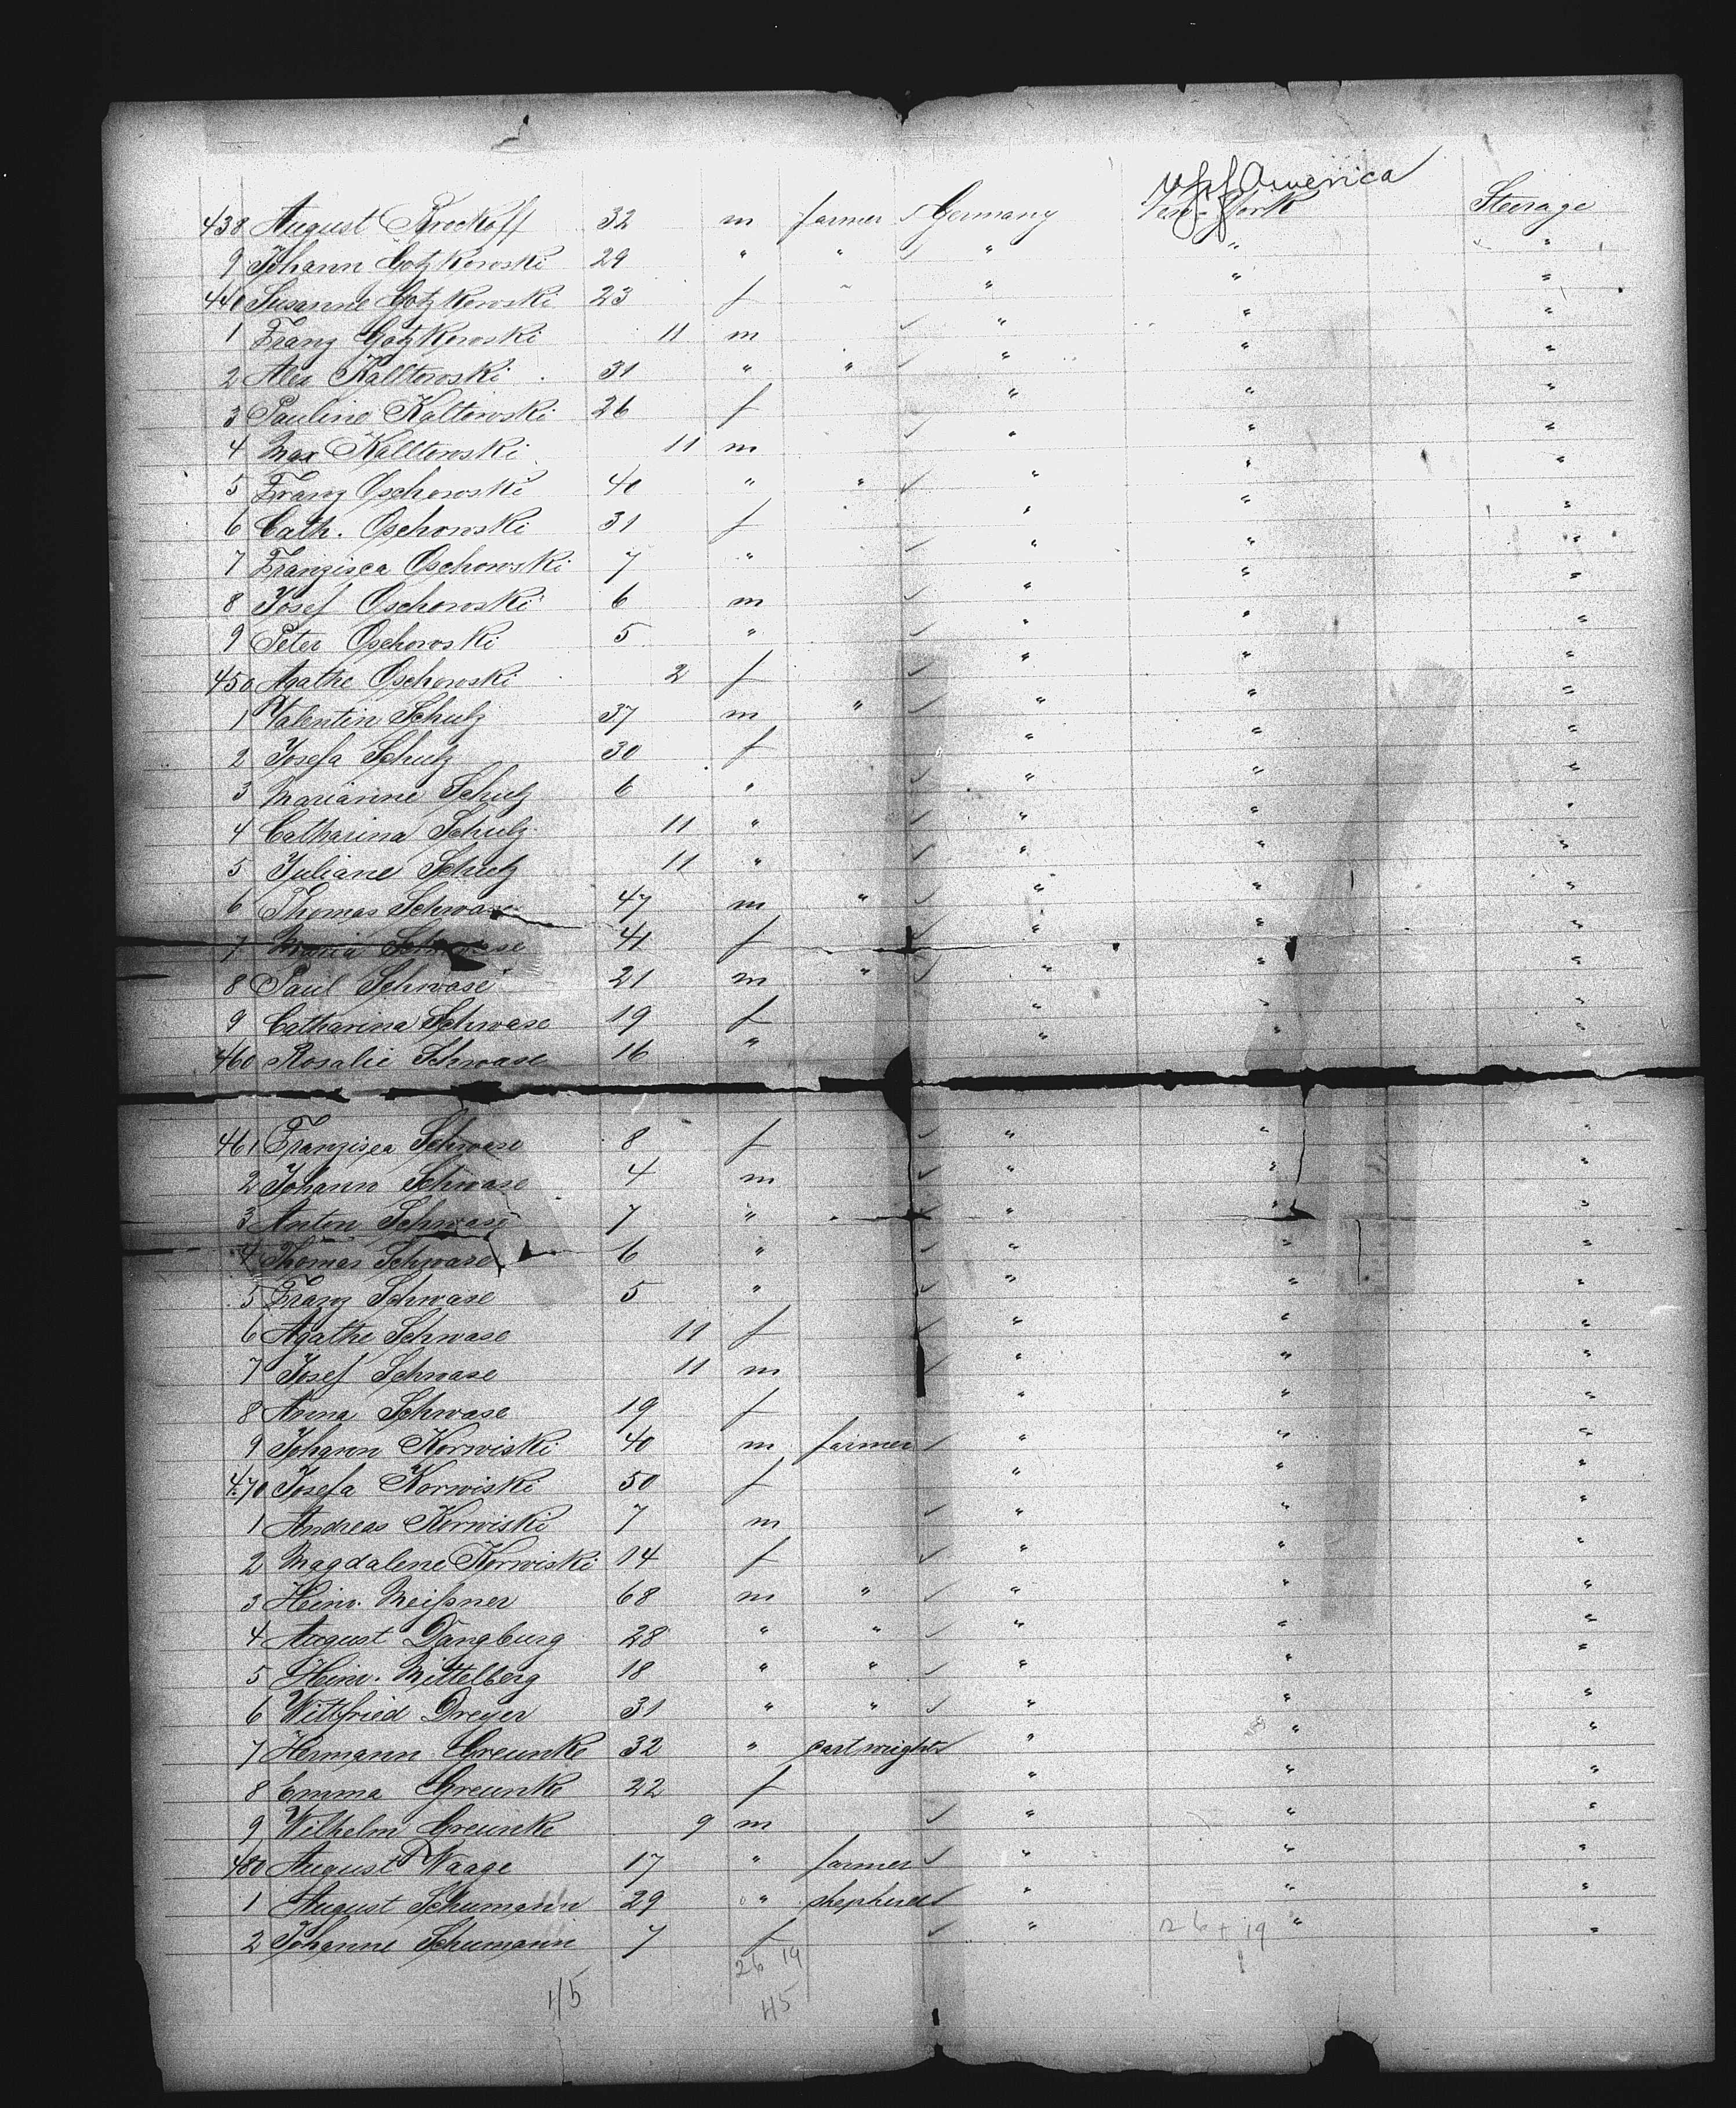 U S of America
438 August Brockoff 32 m farmer Germany New-York Steerage
9 Johann Gotzkowski 29 " " " " "
440 Susanne Gotzkowski 23 f " " " "
1 Franz Gotzkowski 11 m " " "
2 Alex Kalltowski 31 " " " " "
3 Pauline Kaltowski 26 f " " "
4 Max Kalltowski 11 m " " "
5 Franz Oschowski 40 " " " " "
6 Cath. Oschowski 31 f " " "
7 Franzisca Oschowski 7 " " " "
8 Josef Oschowski 6 m " " "
9 Peter Oschowski 5 " " " "
450 Agathe Oschowski 2 f " " "
1 Valentin Schulz 37 m " " " "
2 Josefa Schulz 30 f " " "
3 Marianne Schulz 6 " " " "
4 Catharina Schulz 11 " " " "
5 Juliane Schulz 11 " " " "
6 Thomas Schwase 47 m " " " "
7 Maria Schwase 41 f " " "
8 Paul Schwase 21 m " " " "
9 Catharina Schwase 19 f " " "
460 Rosalie Schwase 16 " " " "
461 Franzisca Schwase 8 f " " "
2 Johann Schwase 4 m " " "
3 Anton Schwase 7 " " " "
4 Thomas Schwase 6 " " " "
5 Franz Schwase 5 " " " "
6 Agathe Schwase 11 f " " "
7 Josef Schwase 11 m " " "
8 Anna Schwase 19 f " " "
9 Johann Korwiski 40 m farmer " " "
470 Josefa Korwiski 50 f " " "
1 Andreas Korwiski 7 m " " "
2 Magdalene Korwiski 14 f " " "
3 Heinr. Meißner 68 m " " " "
4 August Dangburg 28 " " " " "
5 Heinr. Mittelberg 18 " " " " "
6 Wittfried Dreyer 31 " " " " "
7 Hermann Greunke 32 " cartwright " " "
8 Emma Greunke 22 f " " "
9 Wilhelm Greunke 9 m " " "
480 August Waage 17 " farmer " " "
1 August Schumann 29 " shepherd " " "
2 Johanne Schumann 7 f " " "
26 + 19
26 19
45
45